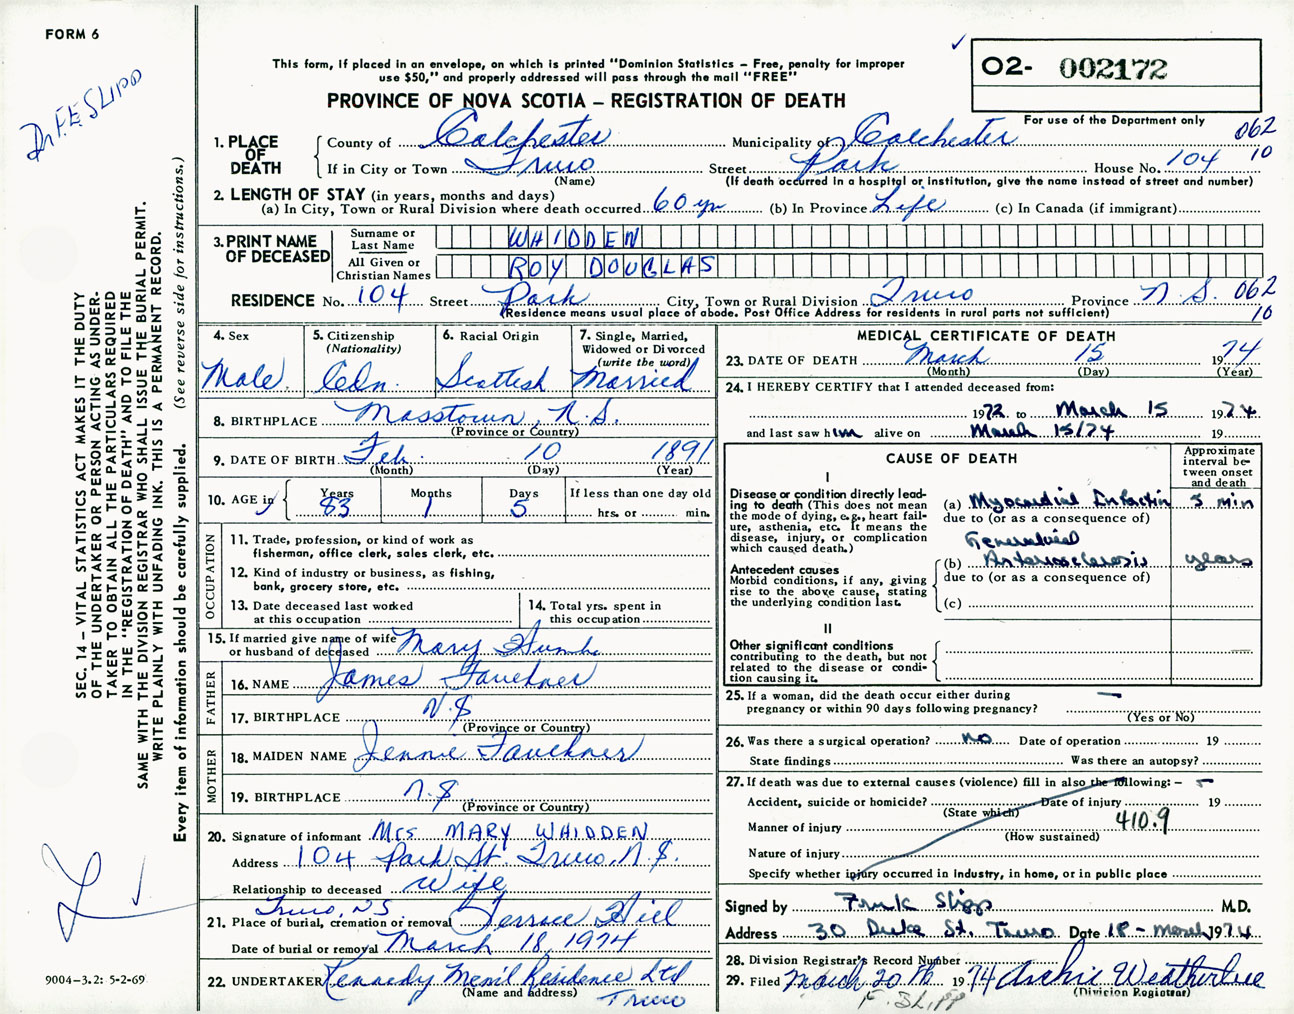 FORM 6
Dr F.E SLIPP
This form, if placed in an envelope, on which is printed "Dominion Statistics – Free, penalty for improper
use $50," and properly addressed will pass through the mail "FREE"
PROVINCE OF NOVA SCOTIA – REGISTRATION OF DEATH
O2- 002172
For use of the Department only
062
10
1. PLACE OF DEATH
County of Colchester Municipality of Colchester
If in City or Town Truro Street Park House No. 104
(Name) (If death occurred in a hospital or institution, give the name instead of street and number)
2. LENGTH OF STAY (in years, months and days)
(a) In City, Town or Rural Division where death occurred 60 yrs (b) In Province Life (c) In Canada (if immigrant)
3. PRINT NAME OF DECEASED
Surname or Last Name WHIDDEN
All Given or Christian Names ROY DOUGLAS
RESIDENCE No. 104 Street Park City, Town or Rural Division Truro Province N.S. 062
(Residence means usual place of abode. Post Office Address for residents in rural parts not sufficient) 10
SEC. 14 – VITAL STATISTICS ACT MAKES IT THE DUTY
OF THE UNDERTAKER OR PERSON ACTING AS UNDER-
TAKER TO OBTAIN ALL THE PARTICULARS REQUIRED
IN THE "REGISTRATION OF DEATH" AND TO FILE THE
SAME WITH THE DIVISION REGISTRAR WHO SHALL ISSUE THE BURIAL PERMIT.
WRITE PLAINLY WITH UNFADING INK. THIS IS A PERMANENT RECORD.
Every item of information should be carefully supplied. (See reverse side for instructions.)
4. Sex
Male
5. Citizenship
(Nationality)
Cdn.
6. Racial Origin
Scottish
7. Single, Married,
Widowed or Divorced
(write the word)
Married
8. BIRTHPLACE Masstown, N.S.
(Province or Country)
9. DATE OF BIRTH Feb. 10 1891
(Month) (Day) (Year)
10. AGE in
Years Months Days If less than one day old
83 1 5 hrs. or min.
OCCUPATION
11. Trade, profession, or kind of work as
fisherman, office clerk, sales clerk, etc.
12. Kind of industry or business, as fishing,
bank, grocery store, etc.
13. Date deceased last worked
at this occupation
14. Total yrs. spent in
this occupation
15. If married give name of wife
or husband of deceased Mary
FATHER
16. NAME James Faulkner
17. BIRTHPLACE N.S
(Province or Country)
MOTHER
18. MAIDEN NAME Jennie Faulkner
19. BIRTHPLACE N.S
(Province or Country)
20. Signature of informant Mrs MARY WHIDDEN
Address 104 Park St. Truro, N.S.
Relationship to deceased Wife
Truro, NS
21. Place of burial, cremation or removal Terrace Hill
Date of burial or removal March 18, 1974
22. UNDERTAKER Kennedy Mem'l Residence Ltd
(Name and address) Truro
MEDICAL CERTIFICATE OF DEATH
23. DATE OF DEATH March 15 1974
(Month) (Day) (Year)
24. I HEREBY CERTIFY that I attended deceased from:
1972 to March 15 1974
and last saw him alive on March 15/74 19
CAUSE OF DEATH
Approximate interval between onset and death
I
Disease or condition directly lead-
ing to death (This does not mean
the mode of dying, e.g., heart fail-
ure, asthenia, etc. It means the
disease, injury, or complication
which caused death.)
(a) Myocardial Infarction 5 min
due to (or as a consequence of)
Generalized
(b) Arteriosclerosis years
due to (or as a consequence of)
(c)
Antecedent causes
Morbid conditions, if any, giving
rise to the above cause, stating
the underlying condition last.
II
Other significant conditions
contributing to the death, but not
related to the disease or condi-
tion causing it.
25. If a woman, did the death occur either during
pregnancy or within 90 days following pregnancy? –
(Yes or No)
26. Was there a surgical operation? no Date of operation 19
State findings Was there an autopsy?
27. If death was due to external causes (violence) fill in also the following: – –
Accident, suicide or homicide? Date of injury 19
(State which)
Manner of injury 410.9
(How sustained)
Nature of injury
Specify whether injury occurred in industry, in home, or in public place
Signed by Frank Slipp M.D.
Address 30 Duke St. Truro Date 18 - March 1974
28. Division Registrar's Record Number
29. Filed March 20th 1974 Archie Weatherbee
(Division Registrar)
F. SLIPP
9004–3.2: 5-2-69